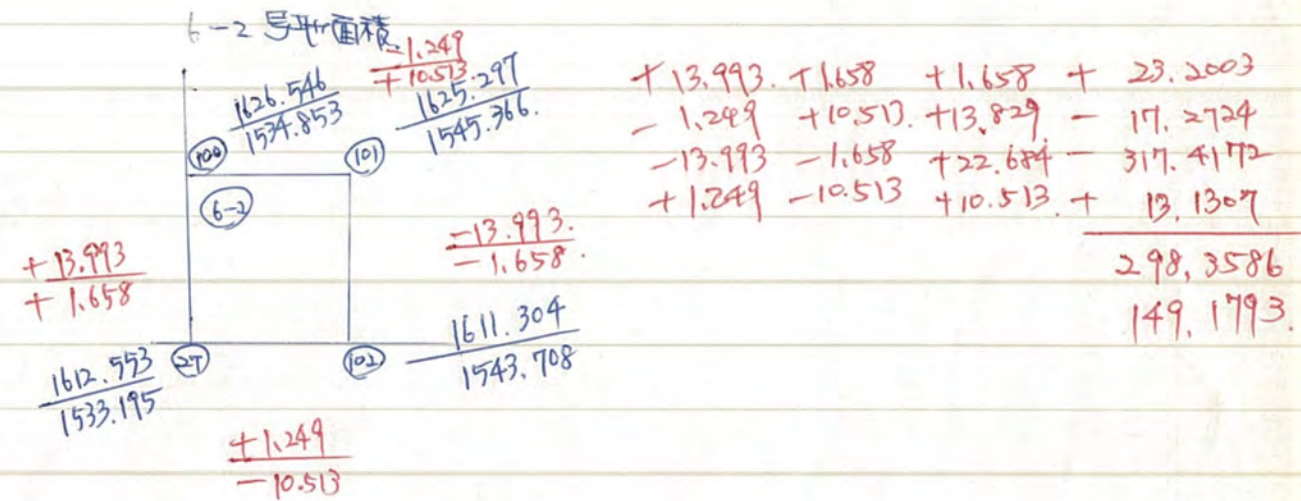 6-2 号地面積
-1.249
+10.513
1626.546
1534.853
1625.297
1545.366.
100
101
6-2
+13.993
+1.658
-13.993.
-1.658.
1612.553
1533.195
27
102
1611.304
1543.708
+1.249
-10.513
+13.993. +1.658 +1.658 + 23.2003
-1.249 +10.513. +13.829. - 17.2724
-13.993 -1.658 +22.684 - 317.4172
+1.249 -10.513 +10.513. + 13.1307
298,3586
149,1793.